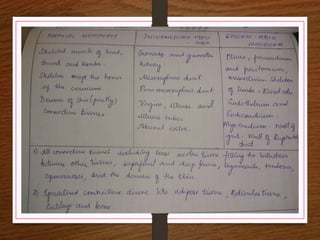 PARAXIAL MESODERM
INTERMEDIATE MESO-
DERM
LATERAL PLATE
MESODERM
Skeletal muscle of head,
trunk and limbs.
Skeleton except the bones
of the cranium
Dermis of skin (partly)
connective tissues
Gonads and gametes
Kidney
Mesonephric duct
Paramesonephric duct
Vagina, uterus and
Uterine tubes
Pleura, pericardium
and peritoneum,
mesenteries. Skeleton
of limbs. Blood cells
Endothelium and
Endocardium.
Myocardium. Wall of
gut. Wall of
1) All connective tissues including loose areolar tissue filling the
between other tissues, superficial and deep fascia, ligaments, tendons,
aponeuroses, and the dermis of the skin
2) Specialised connective tissue like adipose tissue, Reticular tissue,
Cartilage and bone